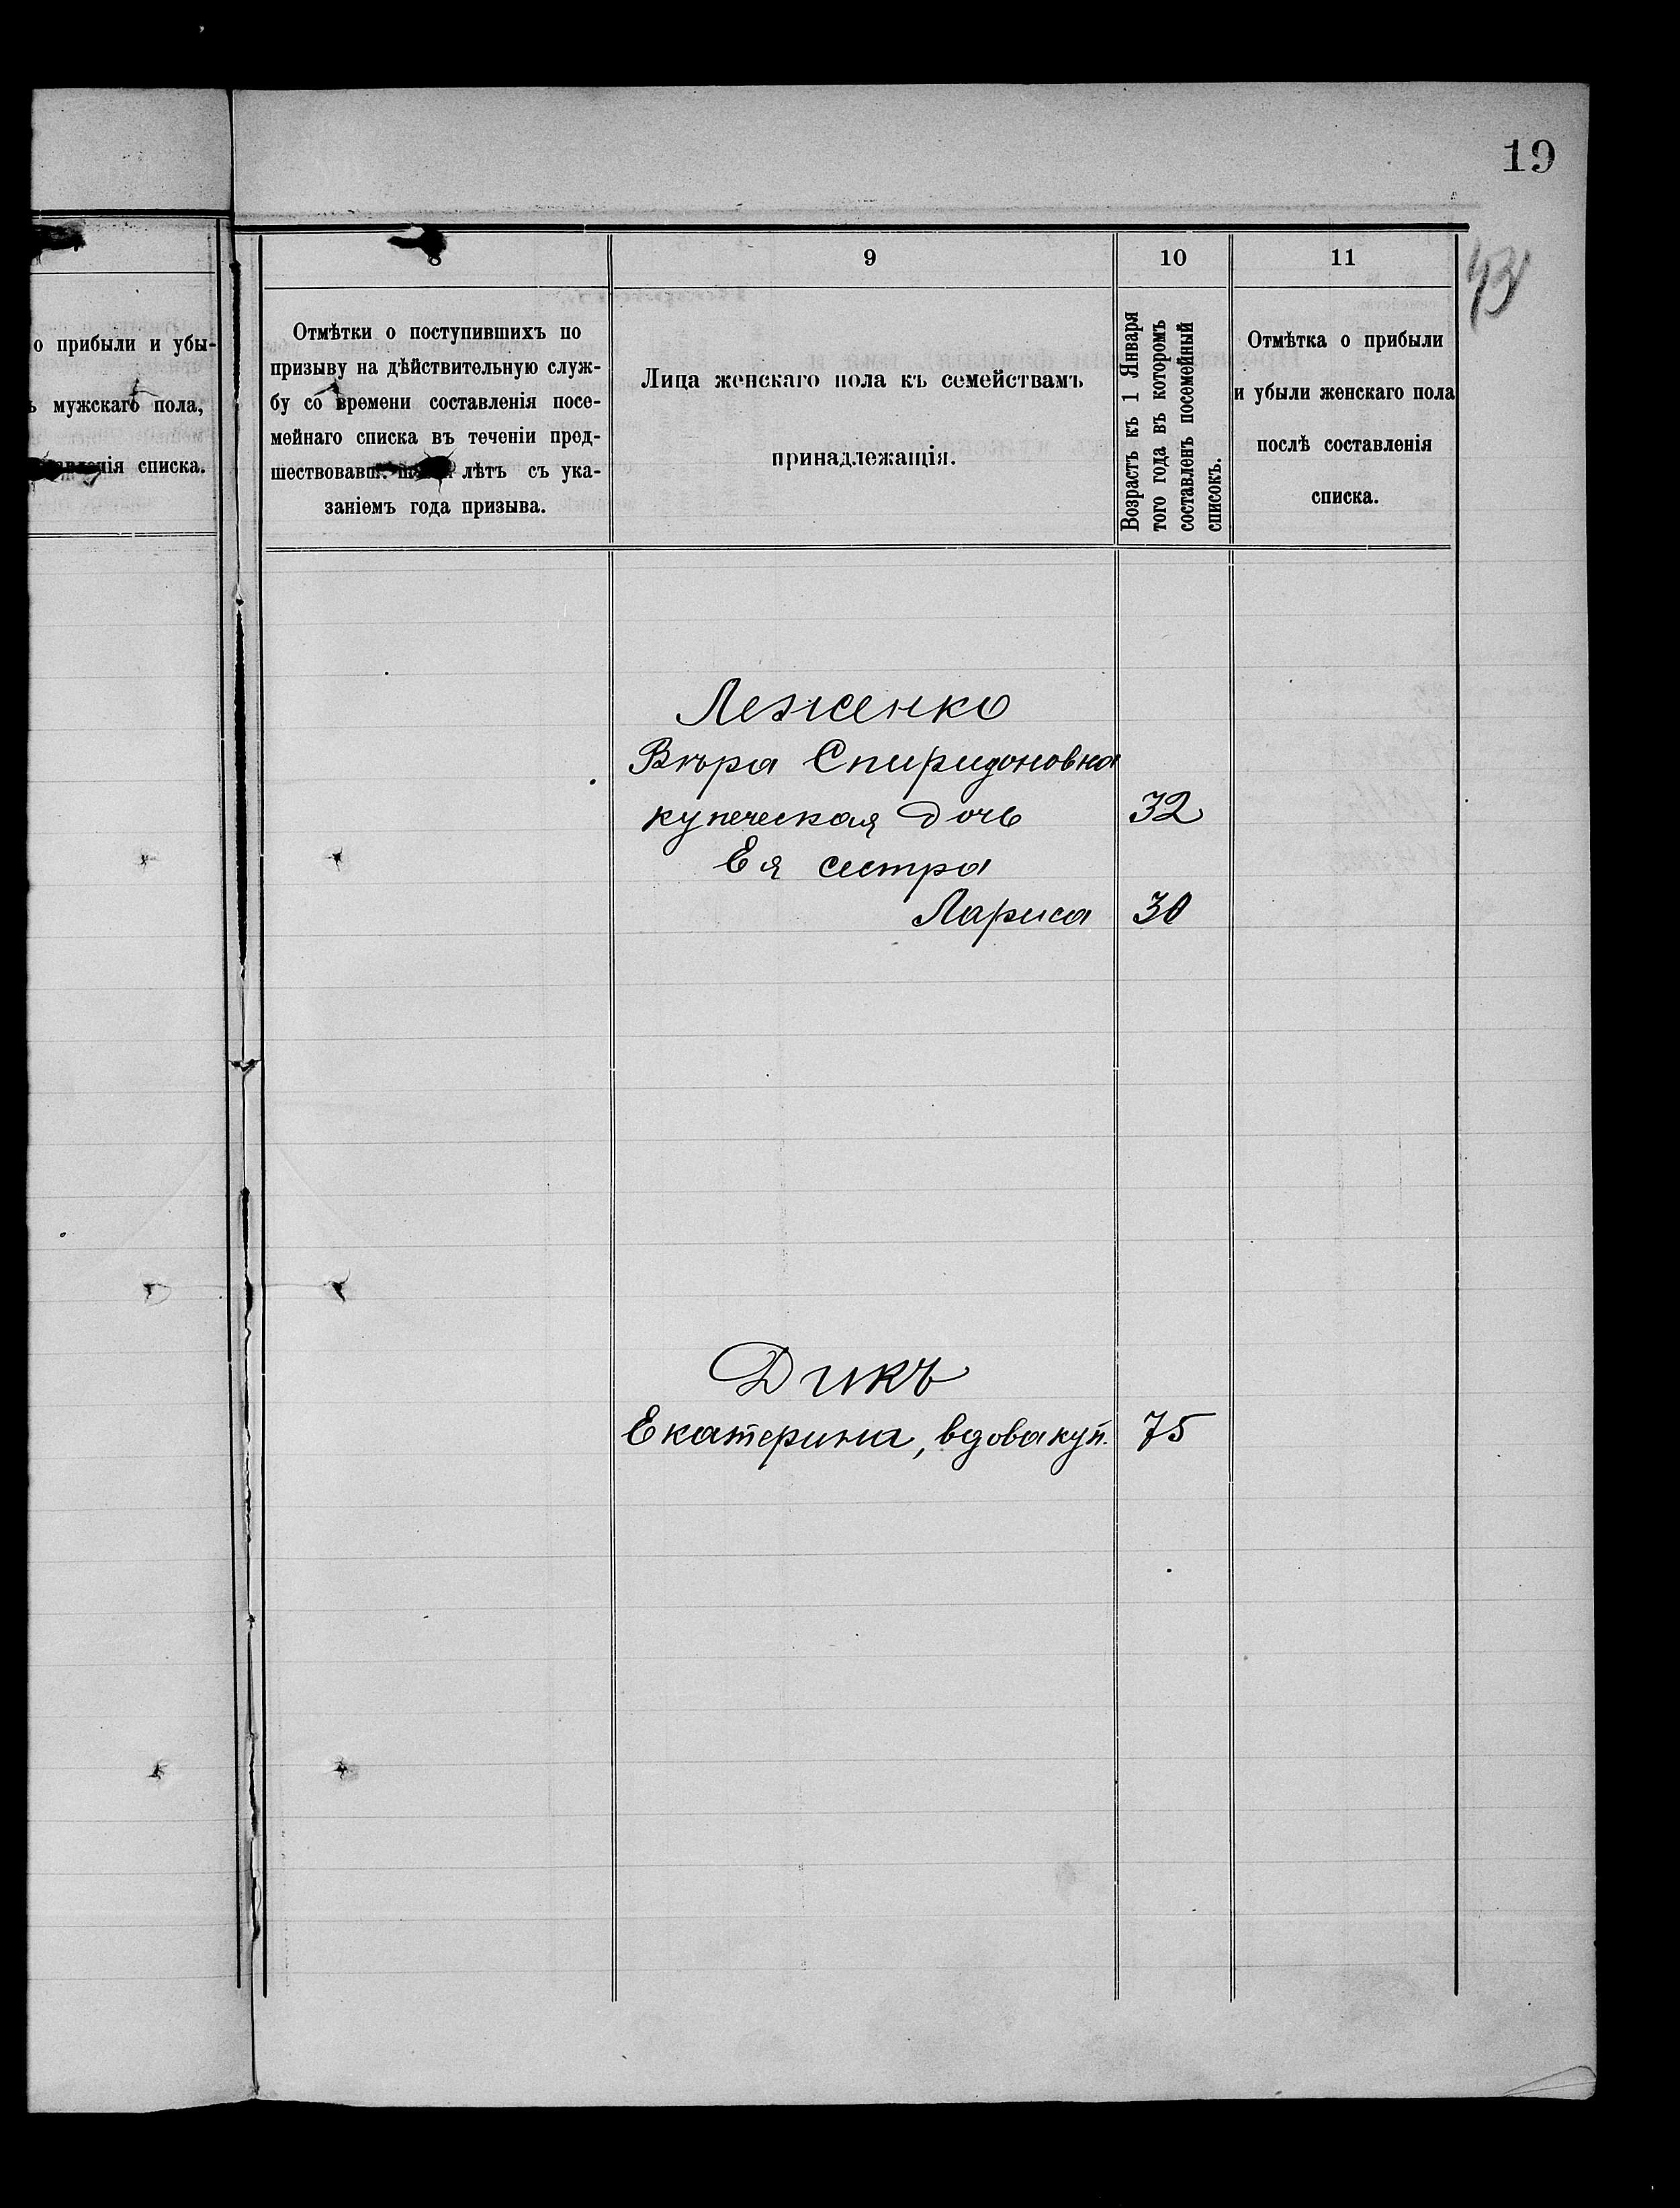 19
43
о прибыли и убы-
ъ мужскаго пола,
списка.
8
Отмѣтки о поступившихъ по
призыву на дѣйствительную служ-
бу со времени составленія посе-
мейнаго списка въ теченіи пред-
лѣтъ съ ука-
заніемъ года призыва.
9
Лица женскаго пола къ семействамъ
принадлежащія.
10
Возрастъ къ 1 Января
того года въ которомъ
составленъ посемейный
списокъ.
11
Отмѣтка о прибыли
и убыли женскаго пола
послѣ составленія
списка.
Леженко
Вѣра Спиридоновна
купеческая дочь 32
Ея сестра
Лариса 30
Дикъ
Екатерина, вдова куп. 75